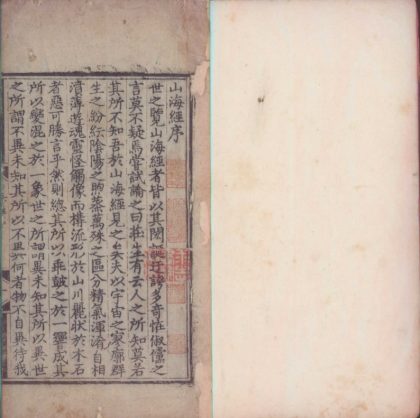 山海經序
世之覽山海經者皆以其閎誕迂誇多奇怪俶儻之
言莫不疑焉嘗試論之曰莊生有云人之所知莫若
其所不知吾於山海經見之矣夫以宇宙之寥廓群
生之紛紜陰陽之煦蒸萬殊之區分精氣渾淆自相
濆薄遊魂靈怪觸像而構流形於山川麗狀於木石
者惡可勝言乎然則總其所以乖鼓之於一響成其
所以變混之於一象世之所謂異未知其所以異世
之所謂不異未知其所以不異何者物不自異待我